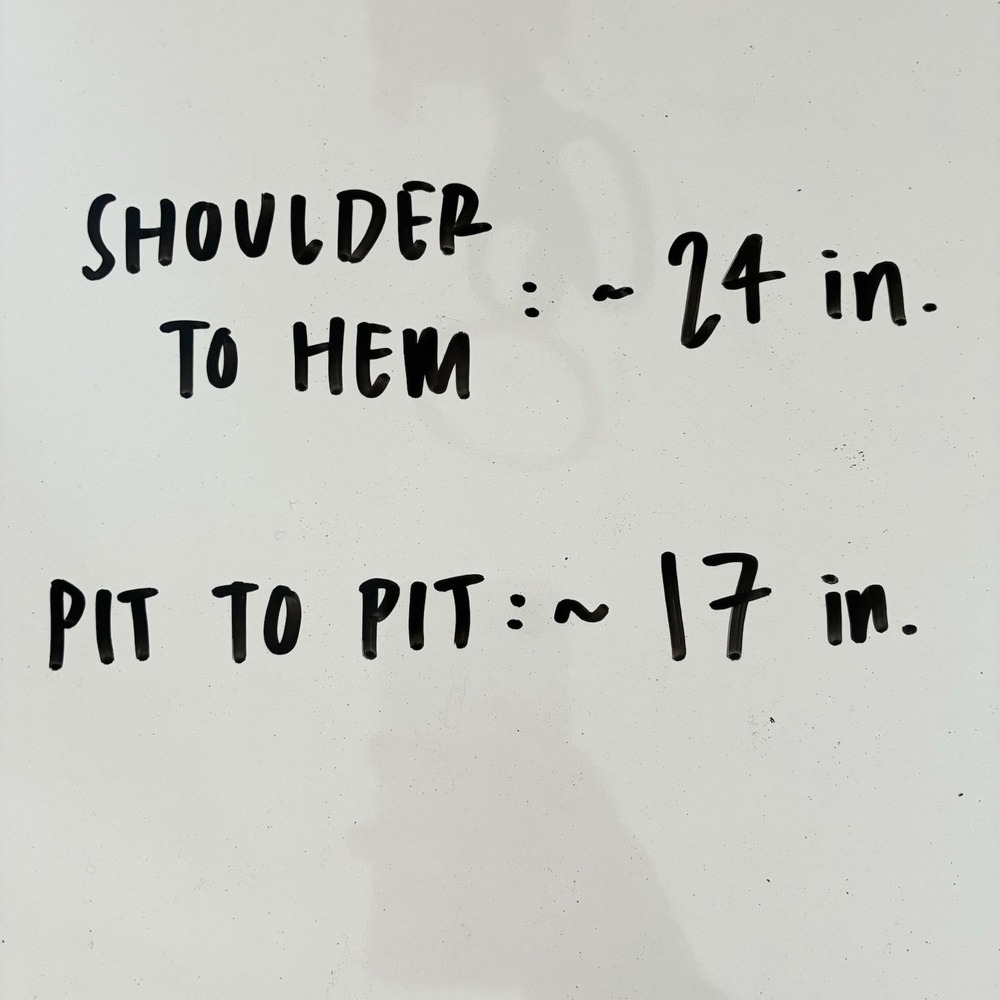 SHOULDER
TO HEM : ~ 24 in.
PIT TO PIT : ~ 17 in.